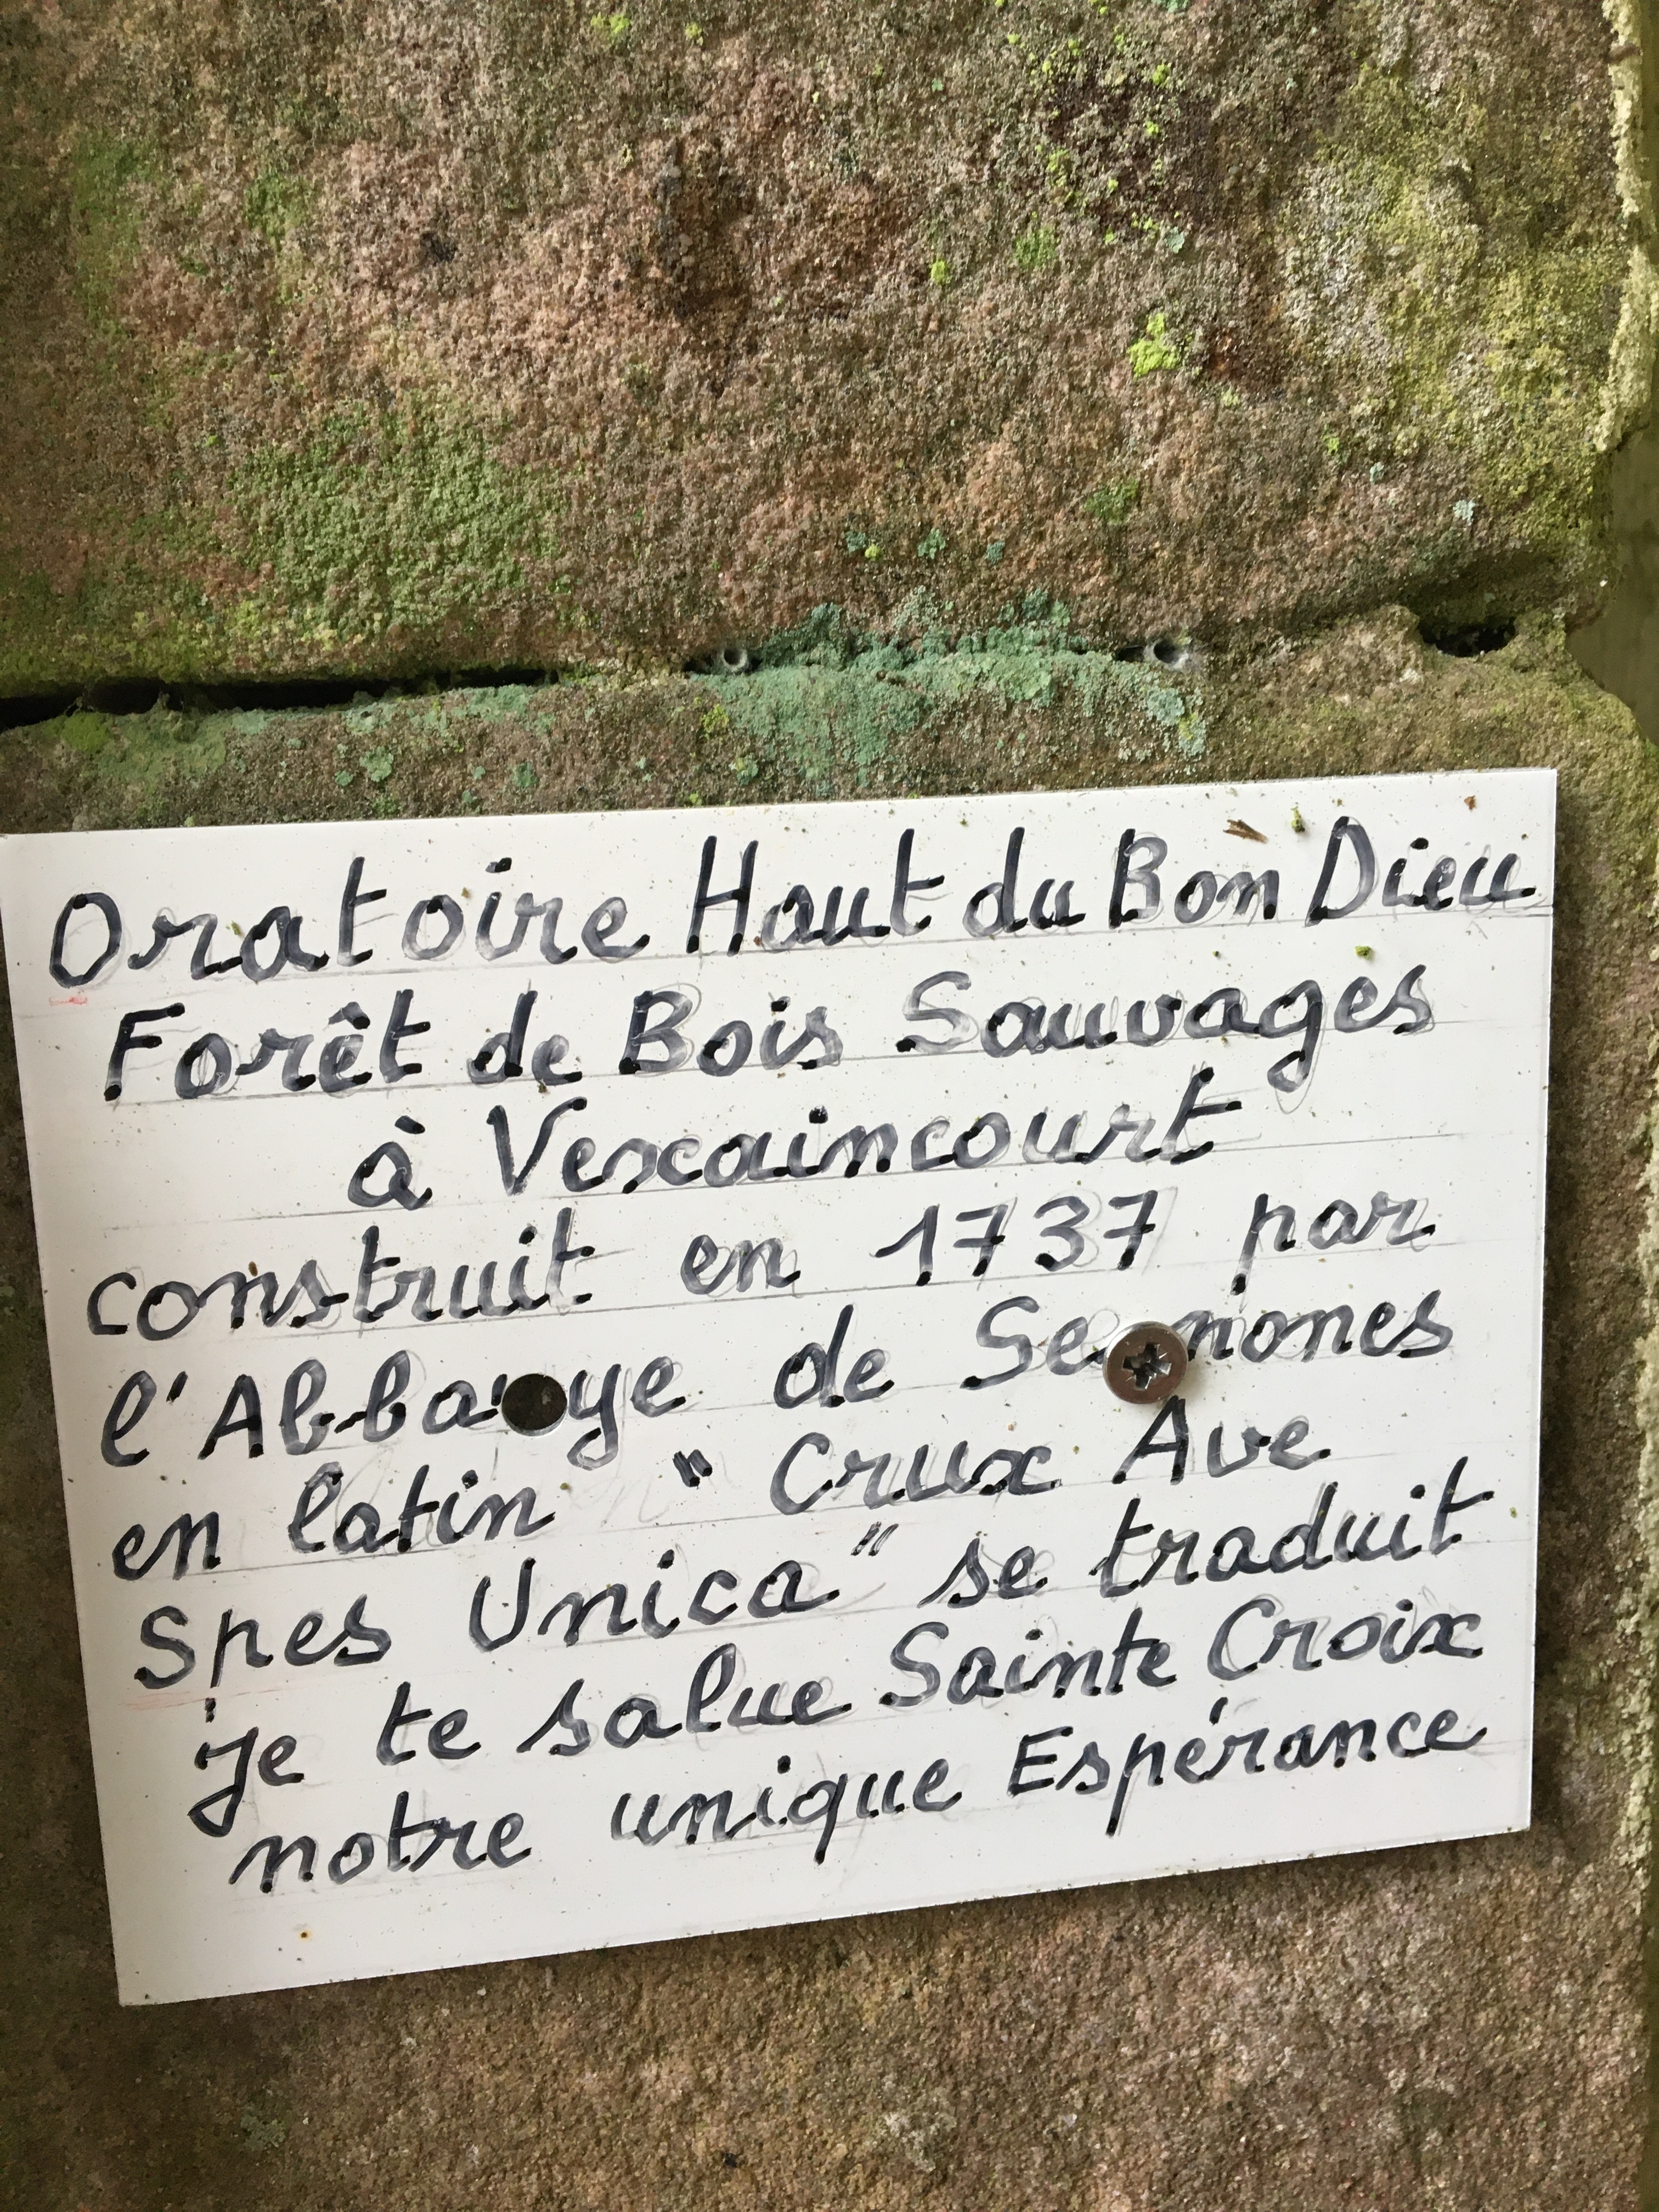 Oratoire Haut du Bon Dieu
Forêt de Bois Sauvages
à Vexaincourt
construit en 1737 par
l'Abbaye de Senones
en latin " Crux Ave
Spes Unica" se traduit
je te salue Sainte Croix
notre unique Espérance